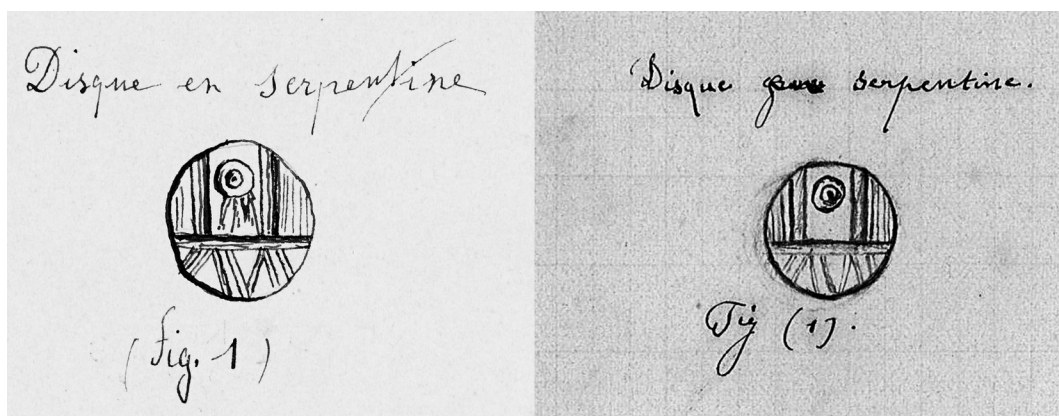 Disque en serpentine
(fig. 1)
Disque serpentine.
Fig (1).